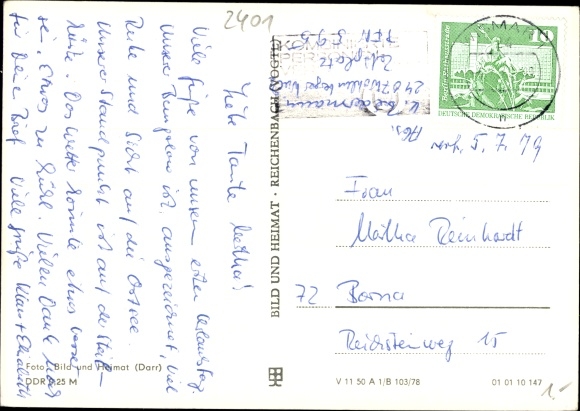 2401
Liebe Tante Martha!
Viele Grüße von unserem ersten Urlaubstag.
Unser Bungalow ist ausgezeichnet, viel
Ruhe und Sicht auf die Ostsee.
Unser Standpunkt ist auf der Steil-
küste. Das Wetter könnte etwas besser
sein. Etwas zu kühl. Vielen Dank
für Deine Viele Grüße Klaus + Elisabeth
Foto: Bild und Heimat (Darr)
DDR 0,25 M
BILD UND HEIMAT · REICHENBACH (VOGTL)
Abs.
K. 
2407 Wohlenberger Wiek
Zeltplatz
PFN 595
10
DEUTSCHE DEMOKRATISCHE REPUBLIK
5. 7. 79
Frau
Martha Reinhardt
72 Borna
Reichsteinweg 15
V 11 50 A 1/B 103/78
01 01 10 147
1.-